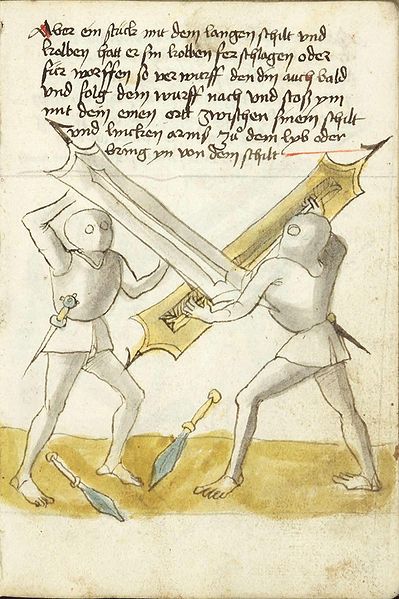 Aber ein stuck mit dem langen schilt und
kolben hatt er sin kolben ferschlagen oder
für worffen so ver wurff den din auch bald
und folg dem wurff nach und stoß ym
mit dem einen ortt zwischen sinem schilt
und lincken arms zů dem lyb oder
bring yn von dem schilt